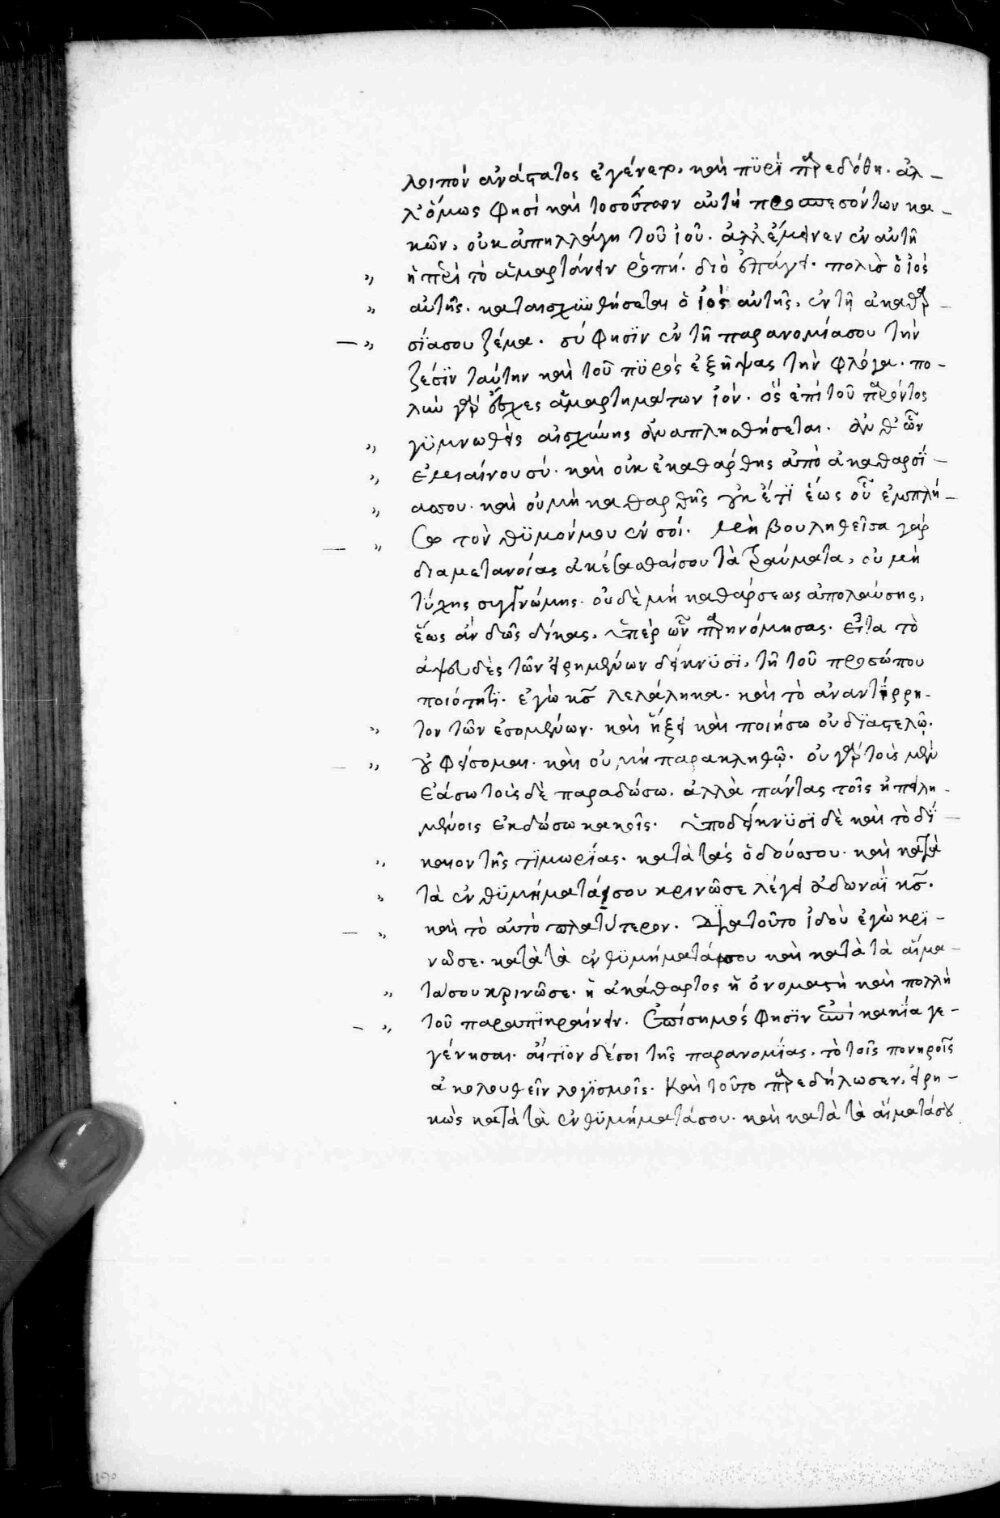 λοιπὸν ἀνάστατος ἐγένετο, καὶ πϋρὶ παρεδόθη. ἀλ-
λ' ὅμως φησὶ καὶ τοσούτων αὐτῇ προσπεσόντων κα-
κῶν, οὐκ ἀπηλλάγη τοῦ ἰοῦ. ἀλλ' ἔμεινεν ἐν αὐτῇ
ἡ περὶ τὸ ἁμαρτάνειν ῥοπή. διὸ ἐπάγει. πολὺς ὁ ἰὸς
αὐτῆς. καταισχυνθήσεται ὁ ἰὸς αὐτῆς, ἐν τῇ ἀκαθαρ-
σίασου ζέμα. σύ φησϊν ἐν τῇ παρανομίασου τὴν
ζέσϊν ταύτην καὶ τοῦ πϋρός ἐξῆψας τὴν φλόγα. πο-
λὺν γὰρ ἔσχες ἁμαρτημάτων ἰόν. ὃς ἐπὶ τοῦ παρόντος
γϋμνωθεὶς αἰσχύνης ἀναπλησθήσεται. ἀνθ' ὧν
ἐμιαίνου σύ. καὶ οὐκ ἐκαθάρθης ἀπὸ ἀκαθαρσί-
ασσου. καὶ οὐ μὴ καθαρθῇς ἔτϊ ἕως οὗ ἐμπλή-
σω τὸν θϋμόνμου ἐν σοί. μὴ βουληθεῖσα γάρ
διαμετανοίας ἀκέσασθαίσου τὰ τραύματα, οὐ μὴ
τύχης συγγνώμης. οὐδὲ μὴ καθάρσεως ἀπολαύσης,
ἕως ἂν δῶς δίκας, ὑπὲρ ὧν παρηνόμησας. εἶτα τὸ
ἀψευδὲς τῶν εἰρημένων δείκνϋσϊ, τῇ τοῦ προσώπου
ποιότητϊ. ἐγὼ κς λελάληκα. καὶ τὸ ἀναντίρρη-
τον τῶν ἐσομένων. καὶ ἥξει καὶ ποιήσω οὐ δϊαστελῶ.
οὐ φείσομαι. καὶ οὐ μὴ παρακληθῶ. οὐ γὰρ τοὺς μὲν
ἐάσω τοὺς δὲ παραδώσω. ἀλλὰ πάντας τοῖς ἠπειλη-
μένοις ἐκδώσω κακοῖς. ὑποδείκνϋσϊ δὲ καὶ τὸ δί-
καιον τῆς τϊμωρίας. κατὰ τὰς ὁδούσσου. καὶ κατὰ
τὰ ἐνθϋμήματάσου κρινῶσε λέγει ἀδωναῒ κς.
καὶ τὸ αὐτὸ πλατύτερον. διατοῦτο ἰδοὺ ἐγὼ κρϊ-
νῶσε. κατὰ τὰ ἐνθϋμήματάσου καὶ κατὰ τὰ αἵμα-
τάσου κρινῶσε. ἡ ἀκάθαρτος ἡ ὀνομαστὴ καὶ πολλὴ
τοῦ παραπϊκραίνειν. ἐπίσημός φησϊν ἐπὶ κακίᾳ γε-
γένησαι. αἴτϊον δέσοι τῆς παρανομίας, τὸ τοῖς πονηροῖς
ἀκολουθεῖν λογϊσμοῖς. καὶ τοῦτο παρεδήλωσεν, εἰρη-
κὼς κατὰ τὰ ἐνθϋμήματάσου. καὶ κατὰ τὰ αἵματάσου